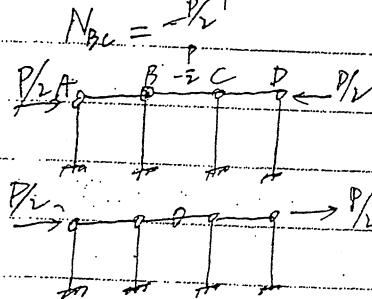 N_BC = -P/2
P/2 A B -P/2 C D P/2
P/2 P/2